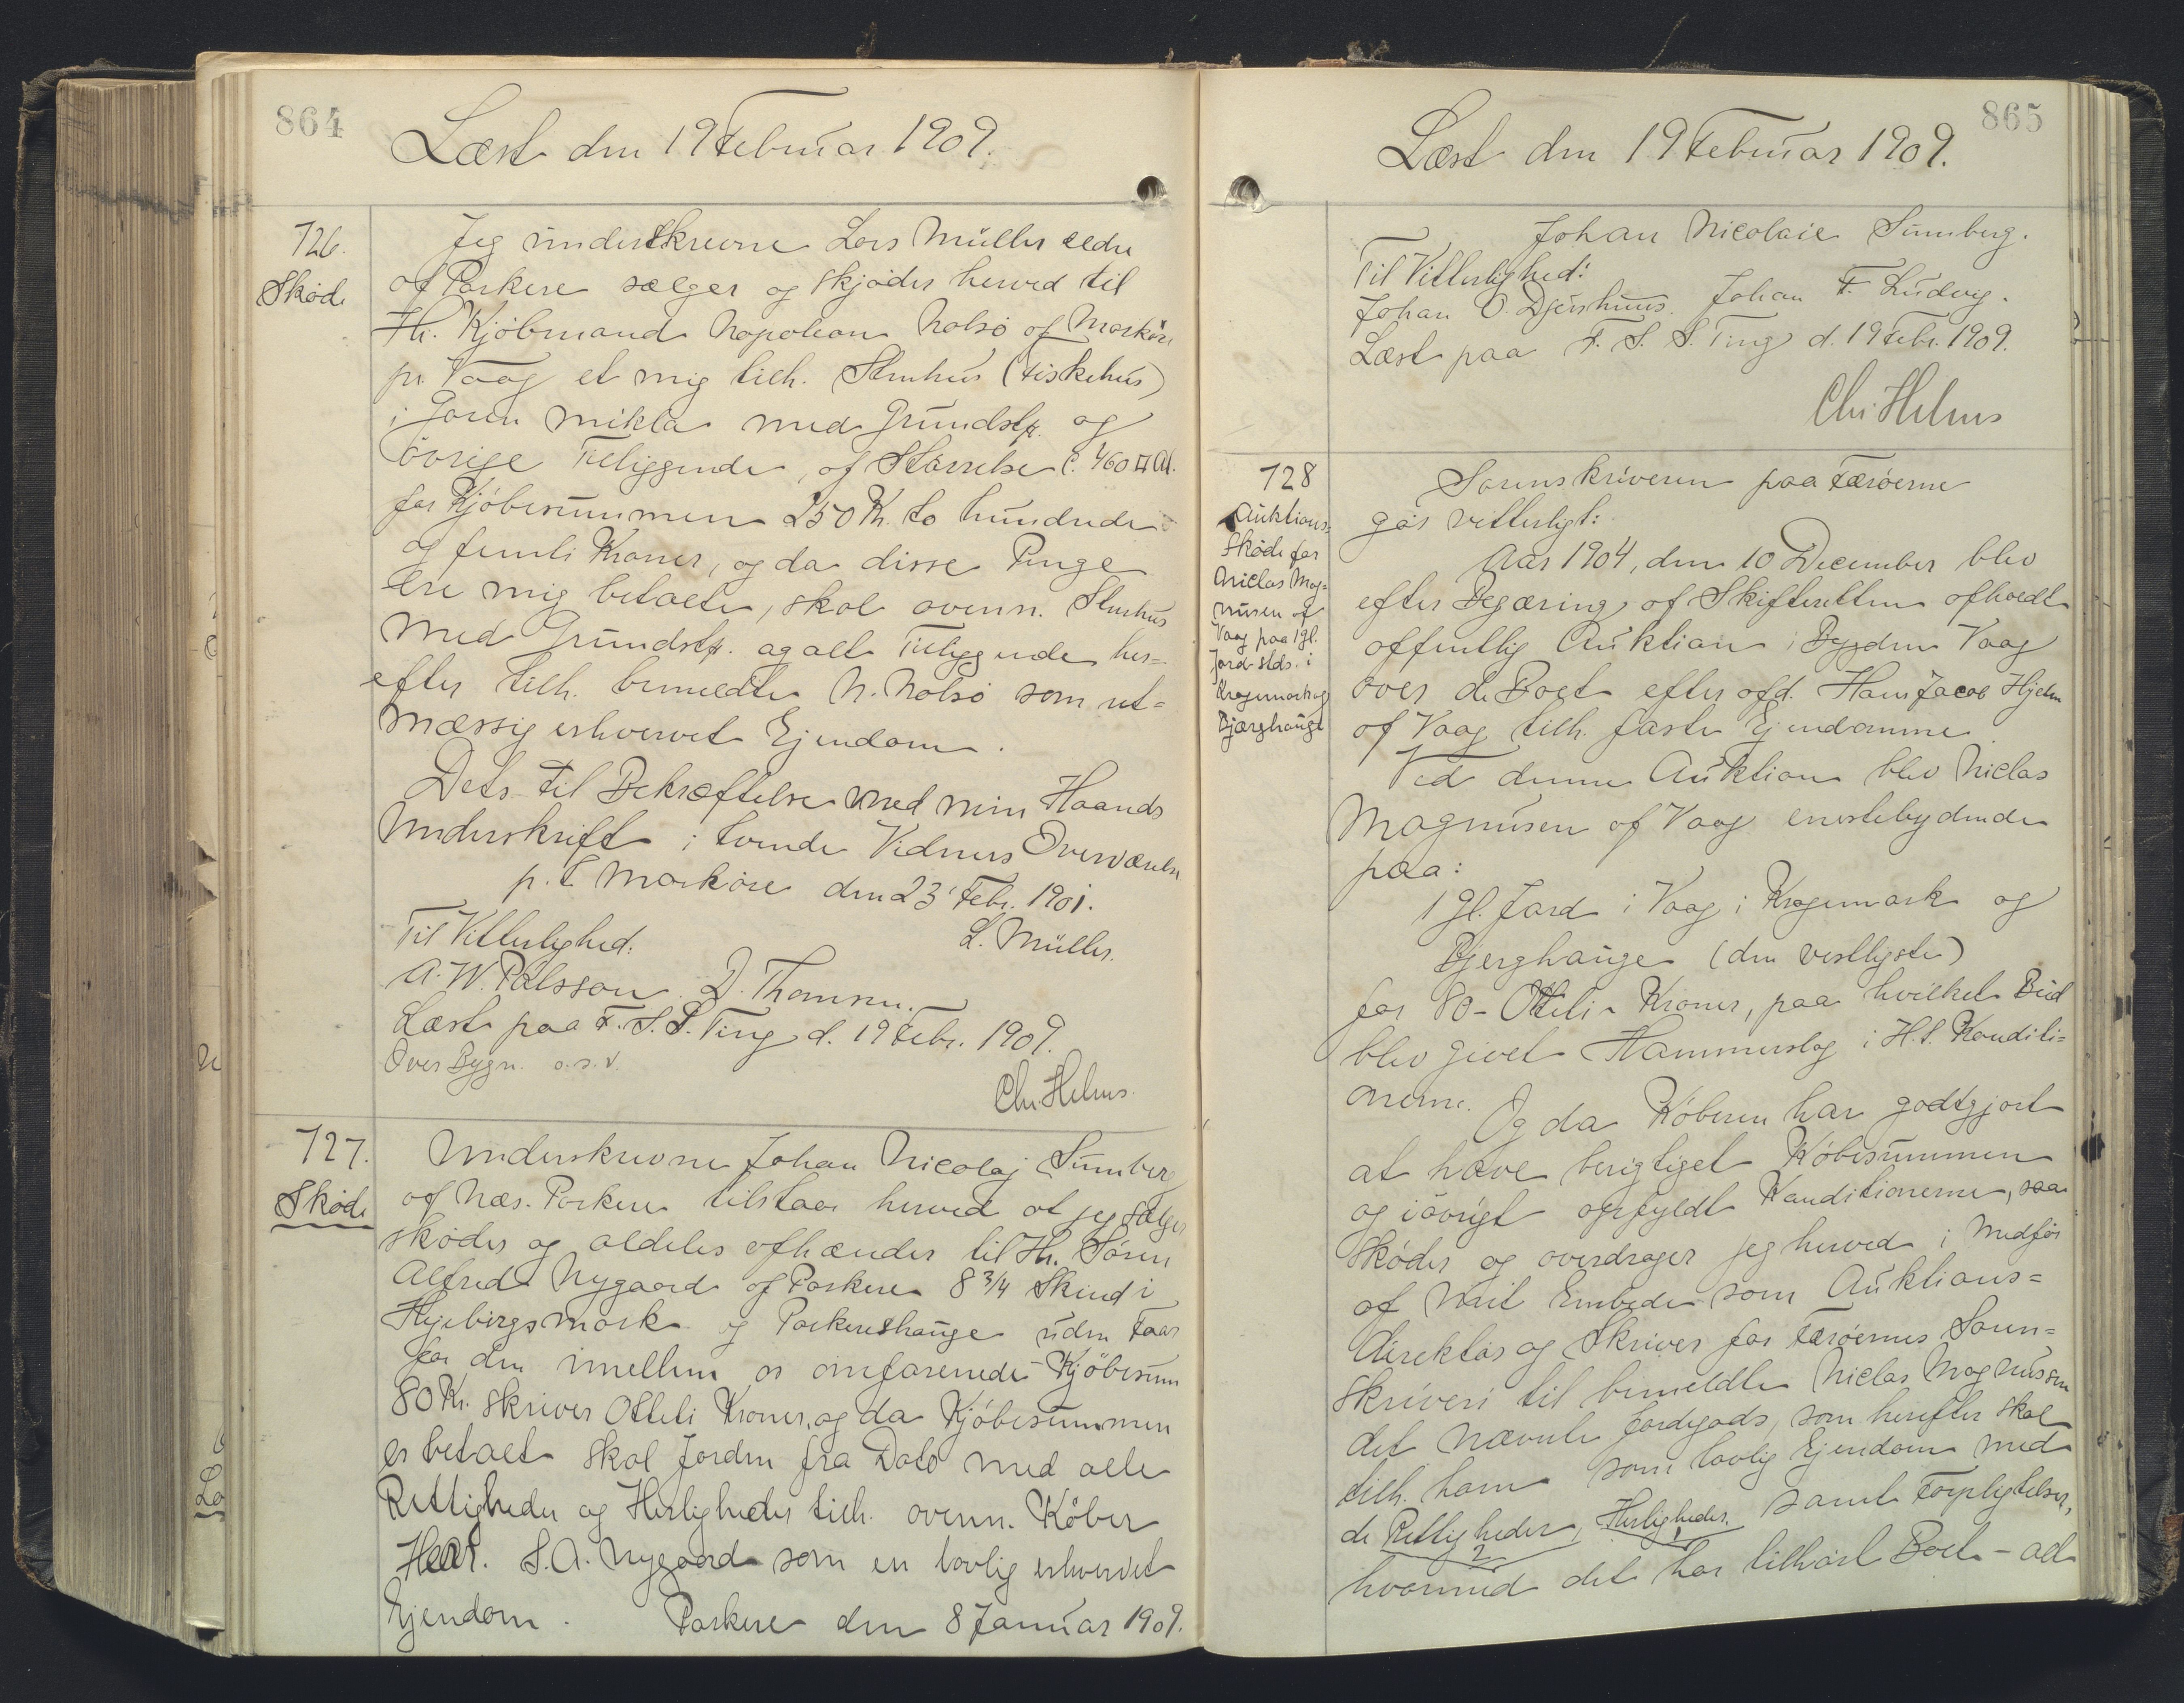 864
Læst den 19 Februar 1909.
726.
Skøde
Jeg underskrevne Lars Müller ældre
af Porkere sælger og skjøder herved til
Hr. Kjøbmand Napoleon Nolsø af Morkøre
pr. Vaag et mig tilh. Stenhus (Fiskehus)
i Goren mikla med Grundstk. og
øvrige Tilliggende, af Størrelse c. 460 □ Al.
for Kjøbesummen 250 Kr. to hundrede
og femti Kroner, og da disse Penge
ere mig betalte, skal ovenn. Stenhus
med Grundstk. og alt Tilliggende her=
efter tilh. bemeldte N. Nolsø som ret=
mæssig erhvervet Ejendom.
Dets til Bekræftelse med min Haands
Underskrift i tvende Vidners Overværelse
p. t. Morkøre den 23' Febr. 1901.
Til Vitterlighed: L. Müller.
A. W. Pålsson. D. Thomsen.
Læst paa F. S. S. Ting d. 19 Febr. 1909.
Over Bygn. o.s.v.
Chr. Helms.
727.
Skøde
Underskrevne Johan Nicolaj Sumberg
af Næs. Porkere tilstaar herved at jeg sælger
skøder og aldeles afhænder til Hr. Søren
Alfred Nygaard af Porkere 8 3/4 Skind i
Hyebirgsmark og Porkereshauge uden Faar
for den imellem os omforenede Kjøbesum
80 Kr. skriver Otteti Kroner, og da Kjøbesummen
er betalt skal Jorden fra Dato med alle
Rettigheder og Herligheder tilh. ovenn. Køber
Herr. S. A. Nygaard som en lovlig erhvervet
Ejendom. Porkere den 8 Januar 1909.
865
Læst den 19 Februar 1909.
Johan Nicolaie Sumberg.
Til Vitterlighed:
Johan O. Djurhuus. Johan F. Ludvig.
Læst paa F. S. S. Ting d. 19 Febr. 1909.
Chr. Helms
728
Auktions=
skøde for
Niclas Mag=
nusen af
Vaag paa 1 gl.
Jord stds. i
Kragemark og
Bjærghauge
Sorenskriveren paa Færøerne
gør vitterligt:
Aar 1904, den 10 December blev
efter Begæring af Skifteretten afholdt
offentlig Auktion i Bygden Vaag
over de Boet efter afd. Hans Jacob Hjelm
af Vaag tilh. faste Ejendomme.
Ved denne Auktion blev Niclas
Magnusen af Vaag enestebydende
paa:
1 gl. Jord i Vaag i Kragemark og
Bjerghauge (den vestligste)
for 80 - Otteti - Kroner, paa hvilket Bud
blev givet Hammerslag i H.t. Konditi=
onerne.
Og da Køberen har godtgjort
at have berigtiget Købesummen
og iøvrigt opfyldt Konditionerne, saa
skøder og overdrager jeg herved i Medfør
af mit Embede som Auktions=
direktør og Skriver for Færøernes Soren=
skriveri til bemeldte Niclas Magnussen
det nævnte Jordegods, som herefter skal
tilh. ham som lovlig Ejendom med
de Rettigheder, Herligheder samt Forpligtelser,
2 1
hvormed det har tilhørt Boet - ad